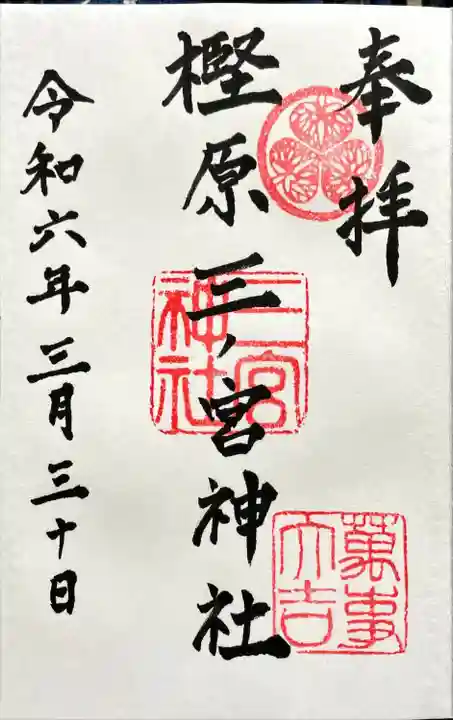 奉拝
樫原三ノ宮神社
三宮
神社
萬事
大吉
令和六年三月三十日